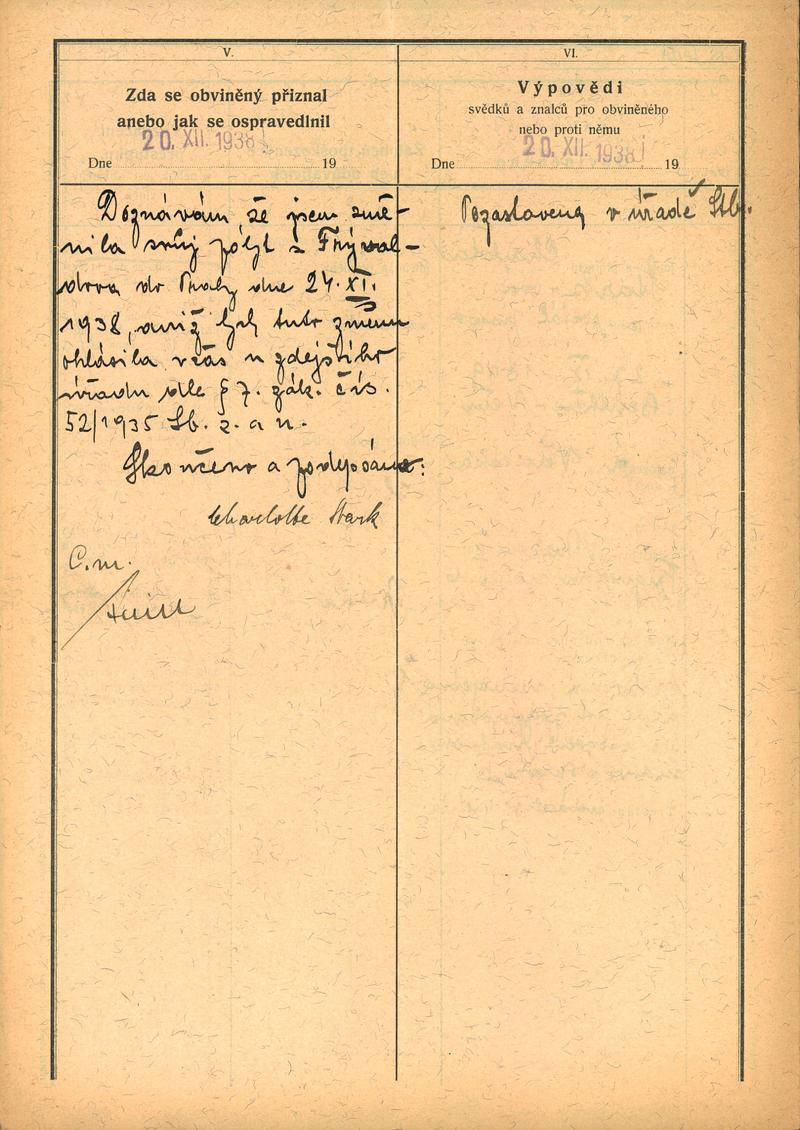 V.
Zda se obviněný přiznal
anebo jak se ospravedlnil
20. XII. 1938
Dne 19
Doznávám že jsem změ-
nila svůj pobyt z Frýval-
dova do Prahy dne 24. XI.
1938, aniž bych tuto změnu
ohlásila včas u zdejšího
úřadu dle § 7. zák. čís.
52/1935 Sb. z. a n.
Skončeno a podepsáno:
Charlotte Stark
C. m.
VI.
Výpovědi
svědků a znalců pro obviněného
nebo proti němu
20. XII. 1938
Dne 19
Pozastavena v úřadě Stb.